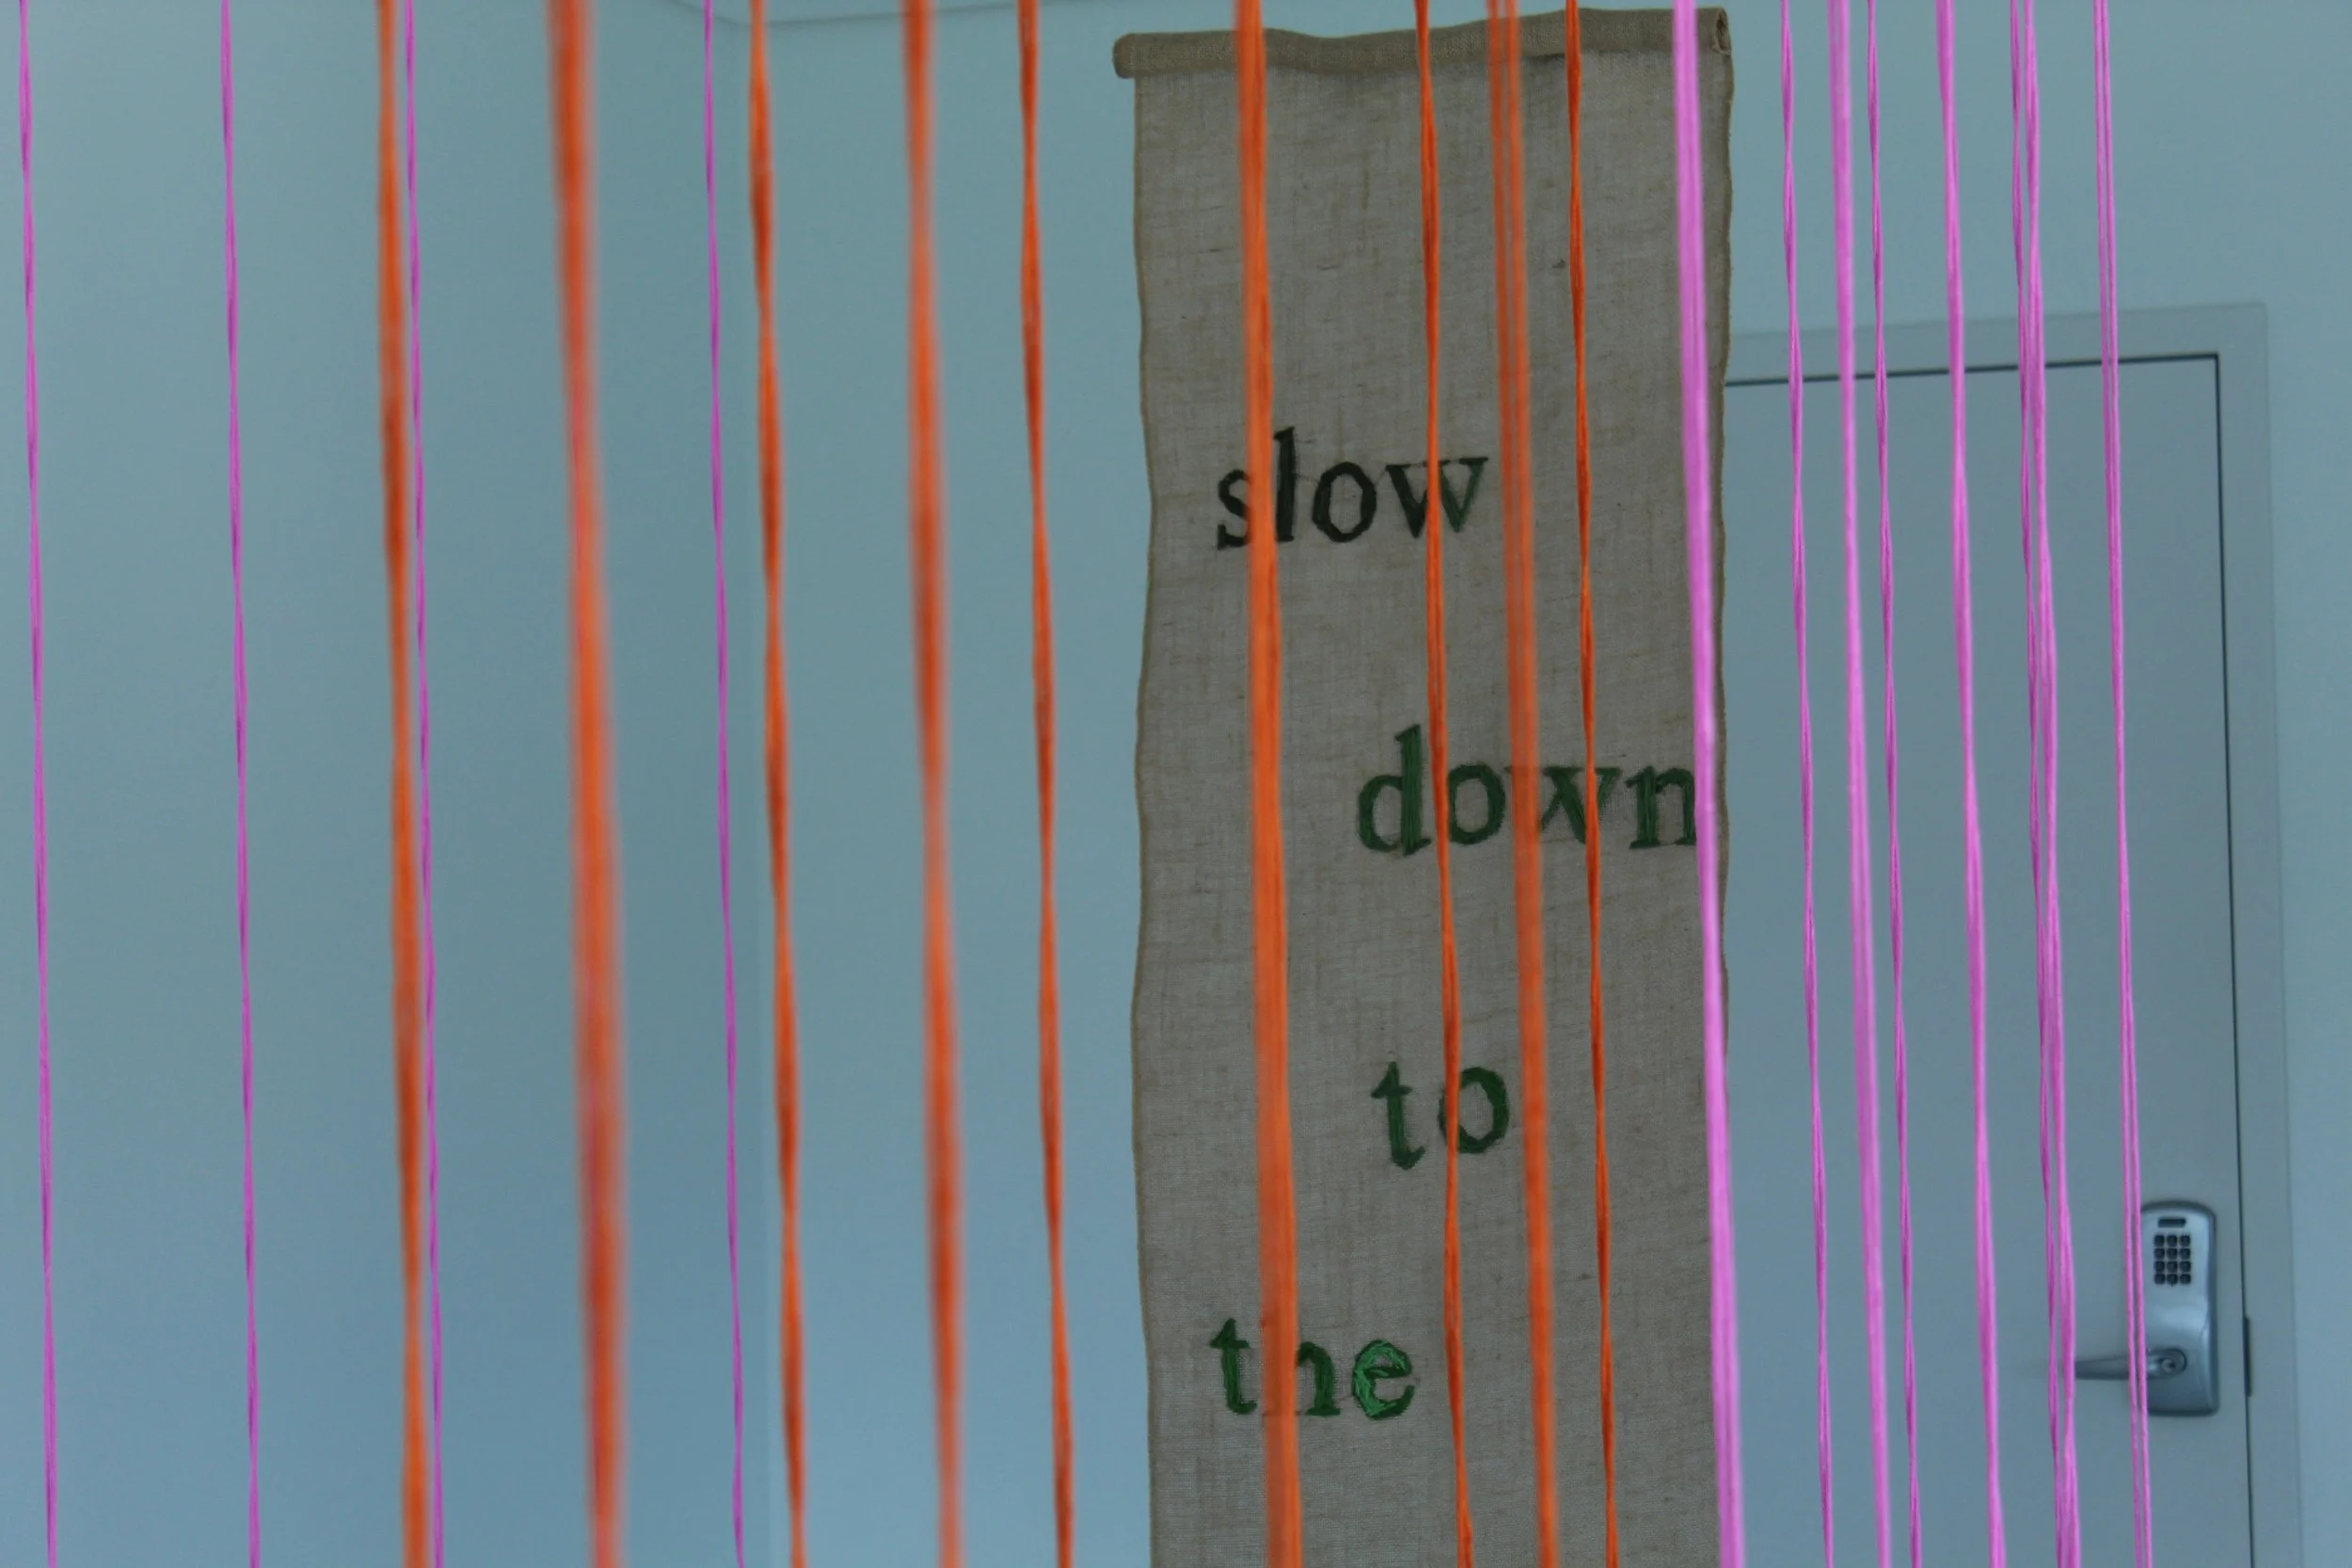 slow
down
to
the